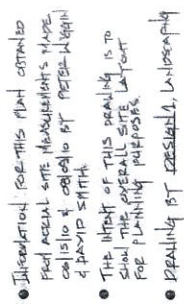 • INFORMATION FOR THIS PLAN OBTAINED
FROM ACTUAL SITE MEASUREMENTS MADE
BY PETER
& DAVID SMITH.
• THE INTENT OF THIS DRAWING IS TO
SHOW THE OVERALL SITE LAYOUT
FOR PLANNING PURPOSES.
• DRAWING BY LANDSCAPING